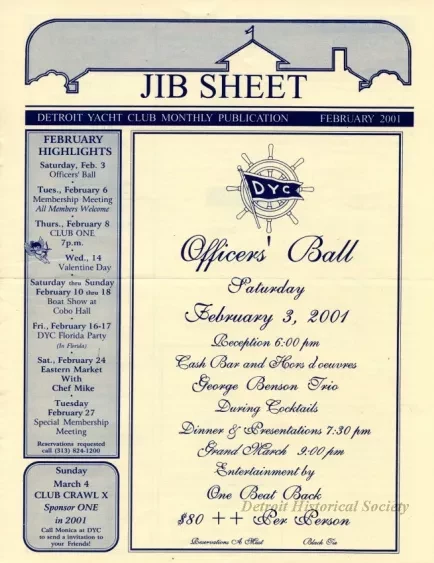 JIB SHEET
DETROIT YACHT CLUB MONTHLY PUBLICATION FEBRUARY 2001
FEBRUARY
HIGHLIGHTS
Saturday, Feb. 3
Officers' Ball
Tues., February 6
Membership Meeting
All Members Welcome
Thurs., February 8
CLUB ONE
7p.m.
Wed., 14
Valentine Day
Saturday thru Sunday
February 10 thru 18
Boat Show at
Cobo Hall
Fri., February 16-17
DYC Florida Party
(In Florida)
Sat., February 24
Eastern Market
With
Chef Mike
Tuesday
February 27
Special Membership
Meeting
Reservations requested
call (313) 824-1200
Sunday
March 4
CLUB CRAWL X
Sponsor ONE
in 2001
Call Monica at DYC
to send a invitation to
your Friends!
DYC
Officers' Ball
Saturday
February 3, 2001
Reception 6:00 pm
Cash Bar and Hors d'oeuvres
George Benson Trio
During Cocktails
Dinner & Presentations 7:30 pm
Grand March 9:00 pm
Entertainment by
One Beat Back
$80 ++ Per Person
Reservations A Must Black Tie
Detroit Historical Society